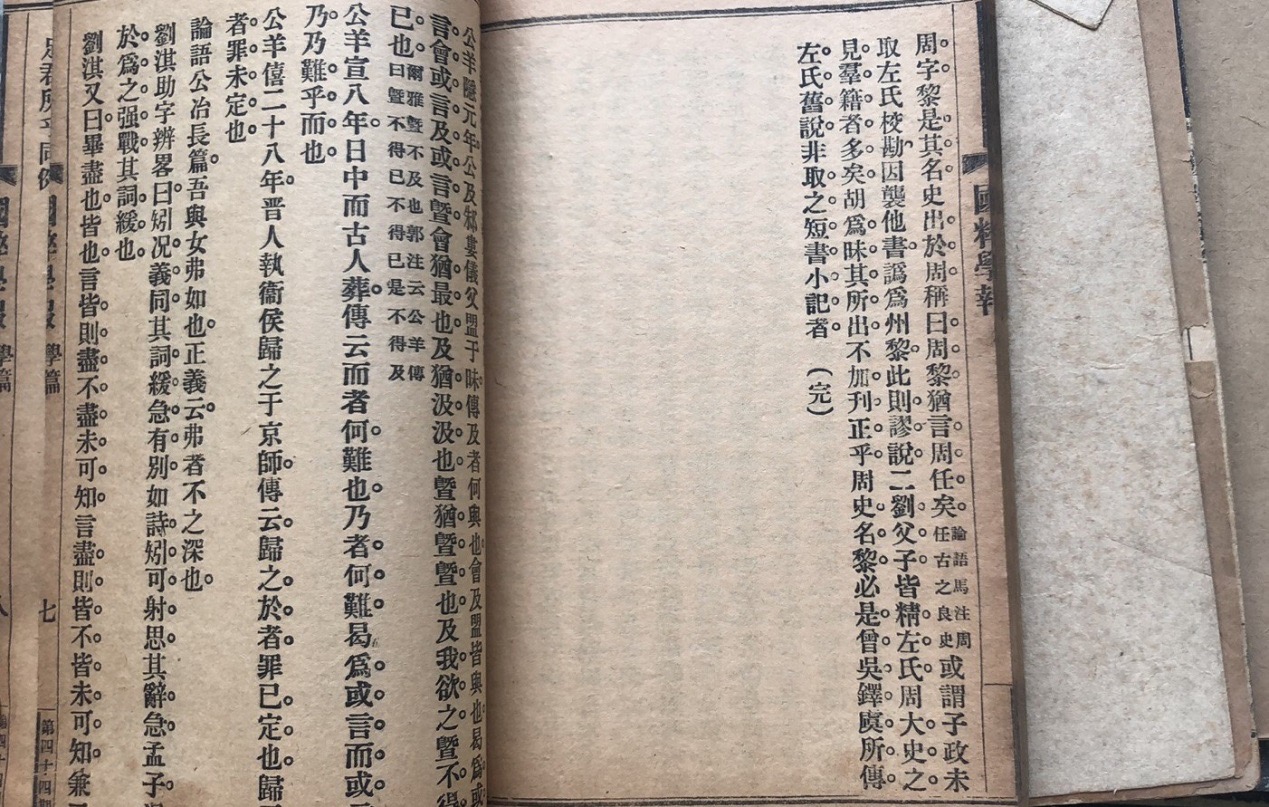 國粹學報
周字黎是其名史出於周稱曰周黎猶言周任矣。論語馬注周任古之良史或謂子政未
取左氏校勘因襲他書譌爲州黎此則謬說二劉父子皆精左氏周大史之
見羣籍者多矣胡爲昧其所出不加刊正乎周史名黎必是曾吳鐸虞所傳
左氏舊說非取之短書小記者。(完)
公羊隱元年公及邾婁儀父盟于昧傳及者何與也會及盟皆與也曷爲或
言會或言及或言曁會猶最也及猶汲汲也曁猶曁曁也及我欲之曁不得
已也。爾雅曁不及也郭注云公羊傳曰曁不得已不得已是不得及
公羊宣八年日中而古人葬傳云而者何難也乃者何難曷爲或言而或言
乃乃難乎而也
公羊僖二十八年。晋人執衞侯歸之于京師。傳云。歸之於者罪已定也歸
者罪未定也
論語公冶長篇。吾與女弗如也。正義云。弗者不之深也。
劉淇助字辨畧曰矧况義同其詞緩急有別如詩矧可射思其辭急孟子
於爲之强戰其詞緩也
劉淇又曰畢盡也皆也言皆則盡不盡未可知言盡則皆不皆未可知兼
學篇
七
第四十四期
學篇
八